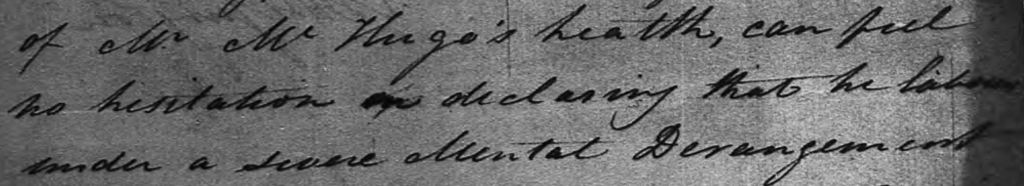 of Mr Mc Hugo's health, can feel
no hesitation in declaring that he labours
under a severe Mental Derangement